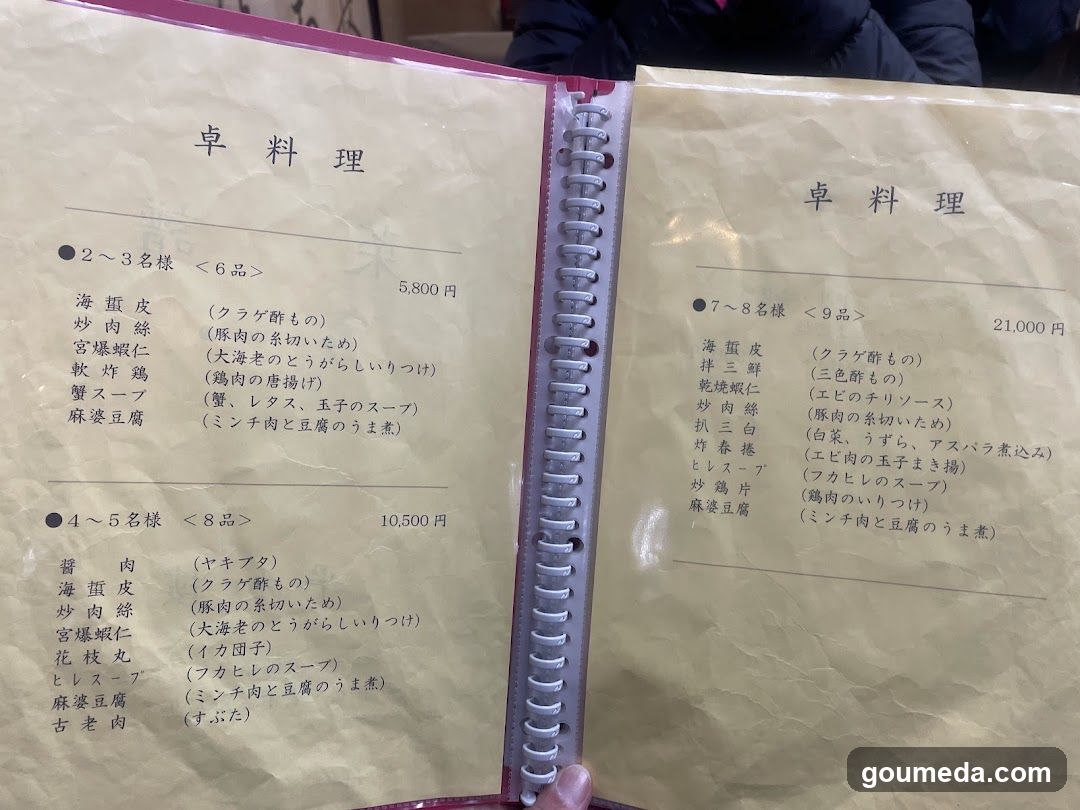 卓料理
●2〜3名様 <6品>
5,800円
海蜇皮 (クラゲ酢もの)
炒肉絲 (豚肉の糸切いため)
宮爆蝦仁 (大海老のとうがらしいりつけ)
軟炸鶏 (鶏肉の唐揚げ)
蟹スープ (蟹、レタス、玉子のスープ)
麻婆豆腐 (ミンチ肉と豆腐のうま煮)
●4〜5名様 <8品> 10,500円
醤肉 (ヤキブタ)
海蜇皮 (クラゲ酢もの)
炒肉絲 (豚肉の糸切いため)
宮爆蝦仁 (大海老のとうがらしいりつけ)
花枝丸 (イカ団子)
ヒレスープ (フカヒレのスープ)
麻婆豆腐 (ミンチ肉と豆腐のうま煮)
古老肉 (すぶた)
卓料理
●7〜8名様 <9品>
21,000円
海蜇皮 (クラゲ酢もの)
拌三鮮 (三色酢もの)
乾焼蝦仁 (エビのチリソース)
炒肉絲 (豚肉の糸切いため)
扒三白 (白菜、うずら、アスパラ煮込み)
炸春捲 (エビ肉の玉子まき揚)
ヒレスープ (フカヒレのスープ)
炒鶏片 (鶏肉のいりつけ)
麻婆豆腐 (ミンチ肉と豆腐のうま煮)
goumeda.com